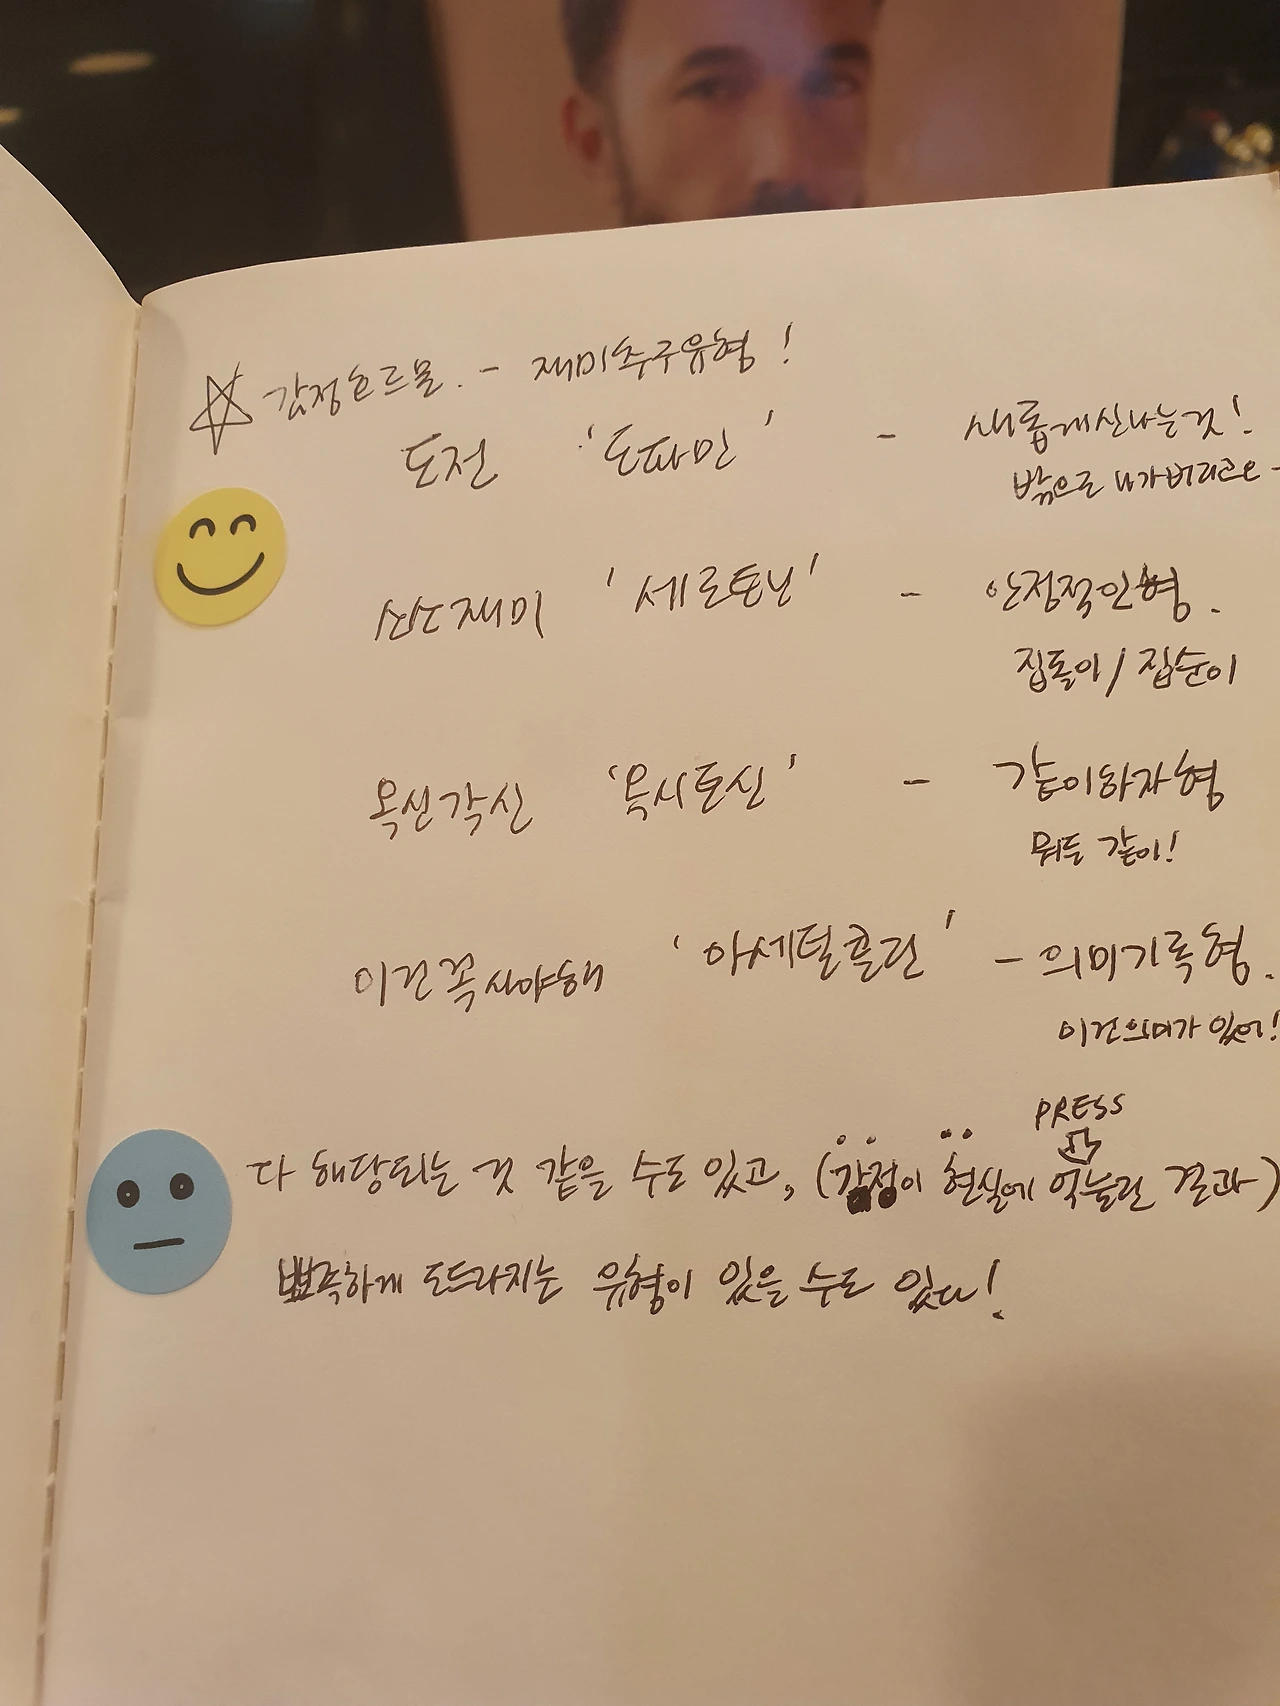 ☆ 감정호르몬. - 재미추구유형!
도전 '도파민' - 새롭게신나는것!
밖으로 나가버리고은-
소소재미 '세로토닌' - 안정적인형.
집돌이/집순이
옥신각신 '옥시토신' - 같이하자형
뭐든 같이!
이건꼭사야해 '아세틸콜린' - 의미기록형.
이건의미가 있어!
PRESS
다 해당되는 것 같을 수도 있고, (감정이 현실에 억눌린 결과)
뾰족하게 도드라지는 유형이 있을 수도 있다!